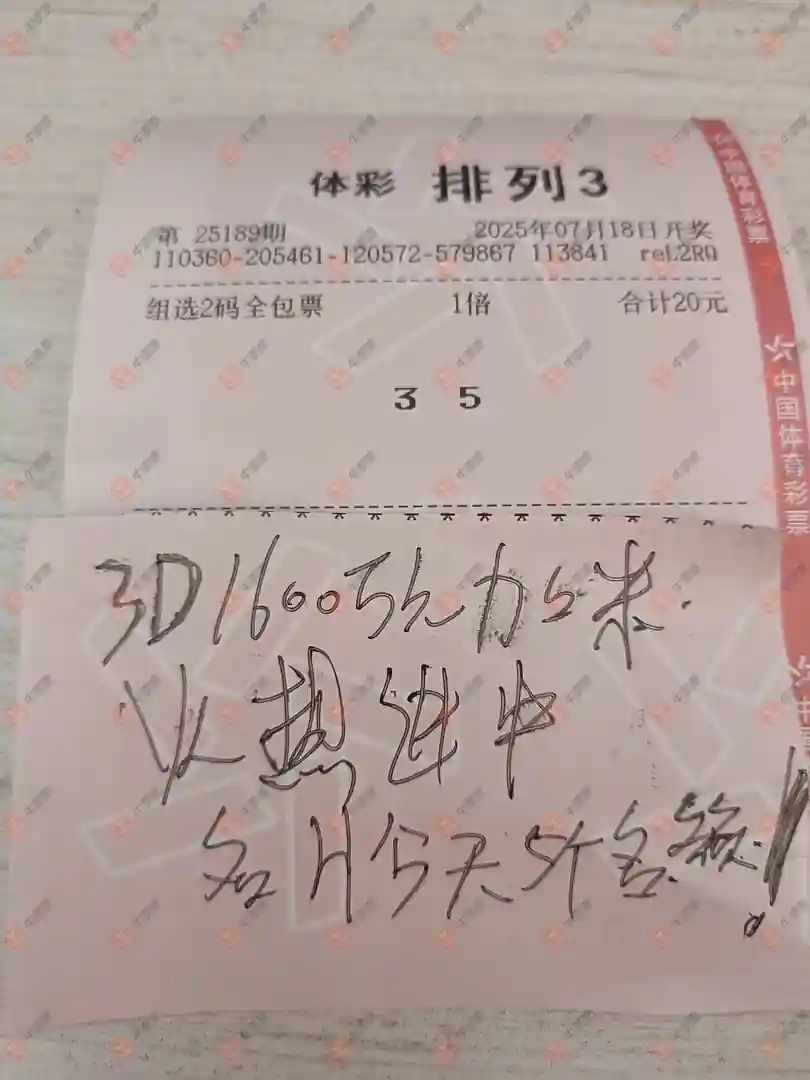 体彩 排列3
第 25189期 2025年07月18日开奖
110360-205461-120572-579867 113841 reL2RQ
组选2码全包票 1倍 合计20元
3 5
3D1600万元加
火热进中
名片今天5个名额!
中国体育彩票
中国体育彩票